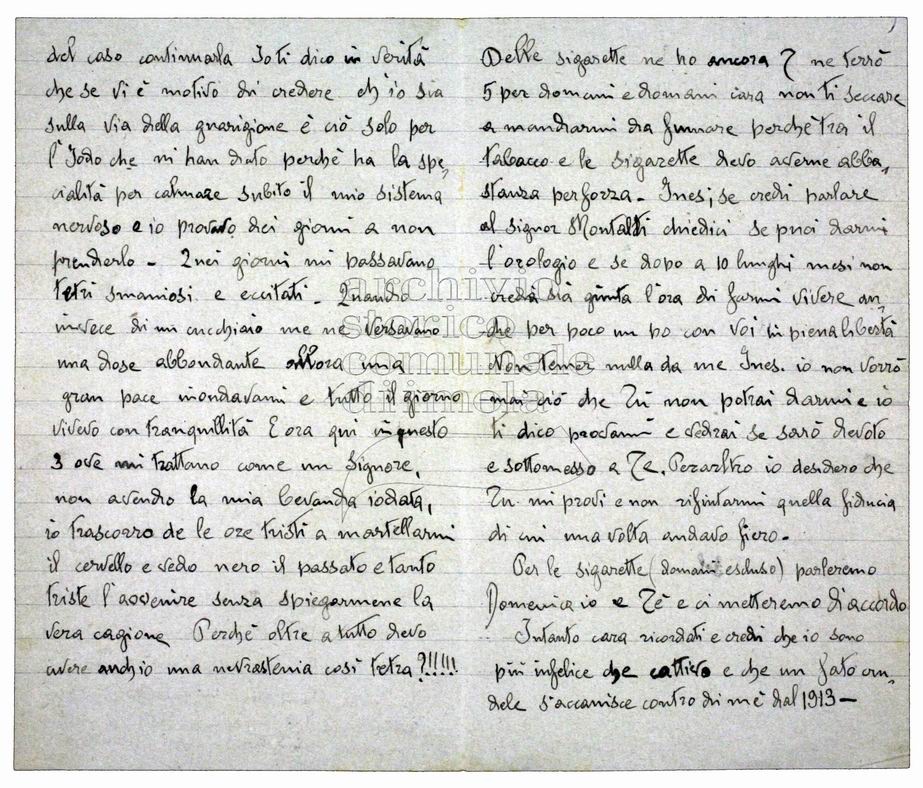 del caso continuarla Io ti dico in verità
che se vi è motivo di credere ch'io sia
sulla via della guarigione è ciò solo per
l'Jodo che mi han dato perchè ha la spe,
cialità per calmare subito il mio sistema
nervoso e io provavo dei giorni a non
prenderlo - Quei giorni mi passavano
tetri smaniosi e eccitati - Quando
invece di un cucchiaio me ne versavano
una dose abbondante allora una
gran pace inondavami e tutto il giorno
vivevo con tranquillità E ora qui in questo
3 ove mi trattano come un Signore,
non avendo la mia bevanda iodata,
io trascorro de le ore tristi a martellarmi
il cervello e vedo nero il passato e tanto
triste l'avvenire senza spiegarmene la
vera cagione Perchè oltre a tutto devo
avere anch'io una nevrastenia così tetra?!!!!!
Delle sigarette ne ho ancora 7 ne terrò
5 per domani e domani cara non ti seccare
a mandarmi da fumare perchè tra il
tabacco e le sigarette devo averne abba,
stanza per forza - Ines; se credi parlare
al signor Montalti chiedici se puoi darmi
l'orologio e se dopo a 10 lunghi mesi non
creda sia giunta l'ora di farmi vivere an,
che per poco un po con voi in piena libertà
Non temer nulla da me Ines. io non vorrò
mai ciò che Tu non potrai darmi e io
ti dico provami e vedrai se sarò devoto
e sottomesso a Te. Peraltro io desidero che
Tu mi provi e non rifiutarmi quella fiducia
di cui una volta andavo fiero -
Per le sigarette (domani escluso) parleremo
Domenica io e Tè e ci metteremo d'accordo
Intanto cara ricordati e credi che io sono
più infelice che cattivo e che un fato cru,
dele s'accanisce contro di mè dal 1913 -
archivio
storico
comunale
di imola